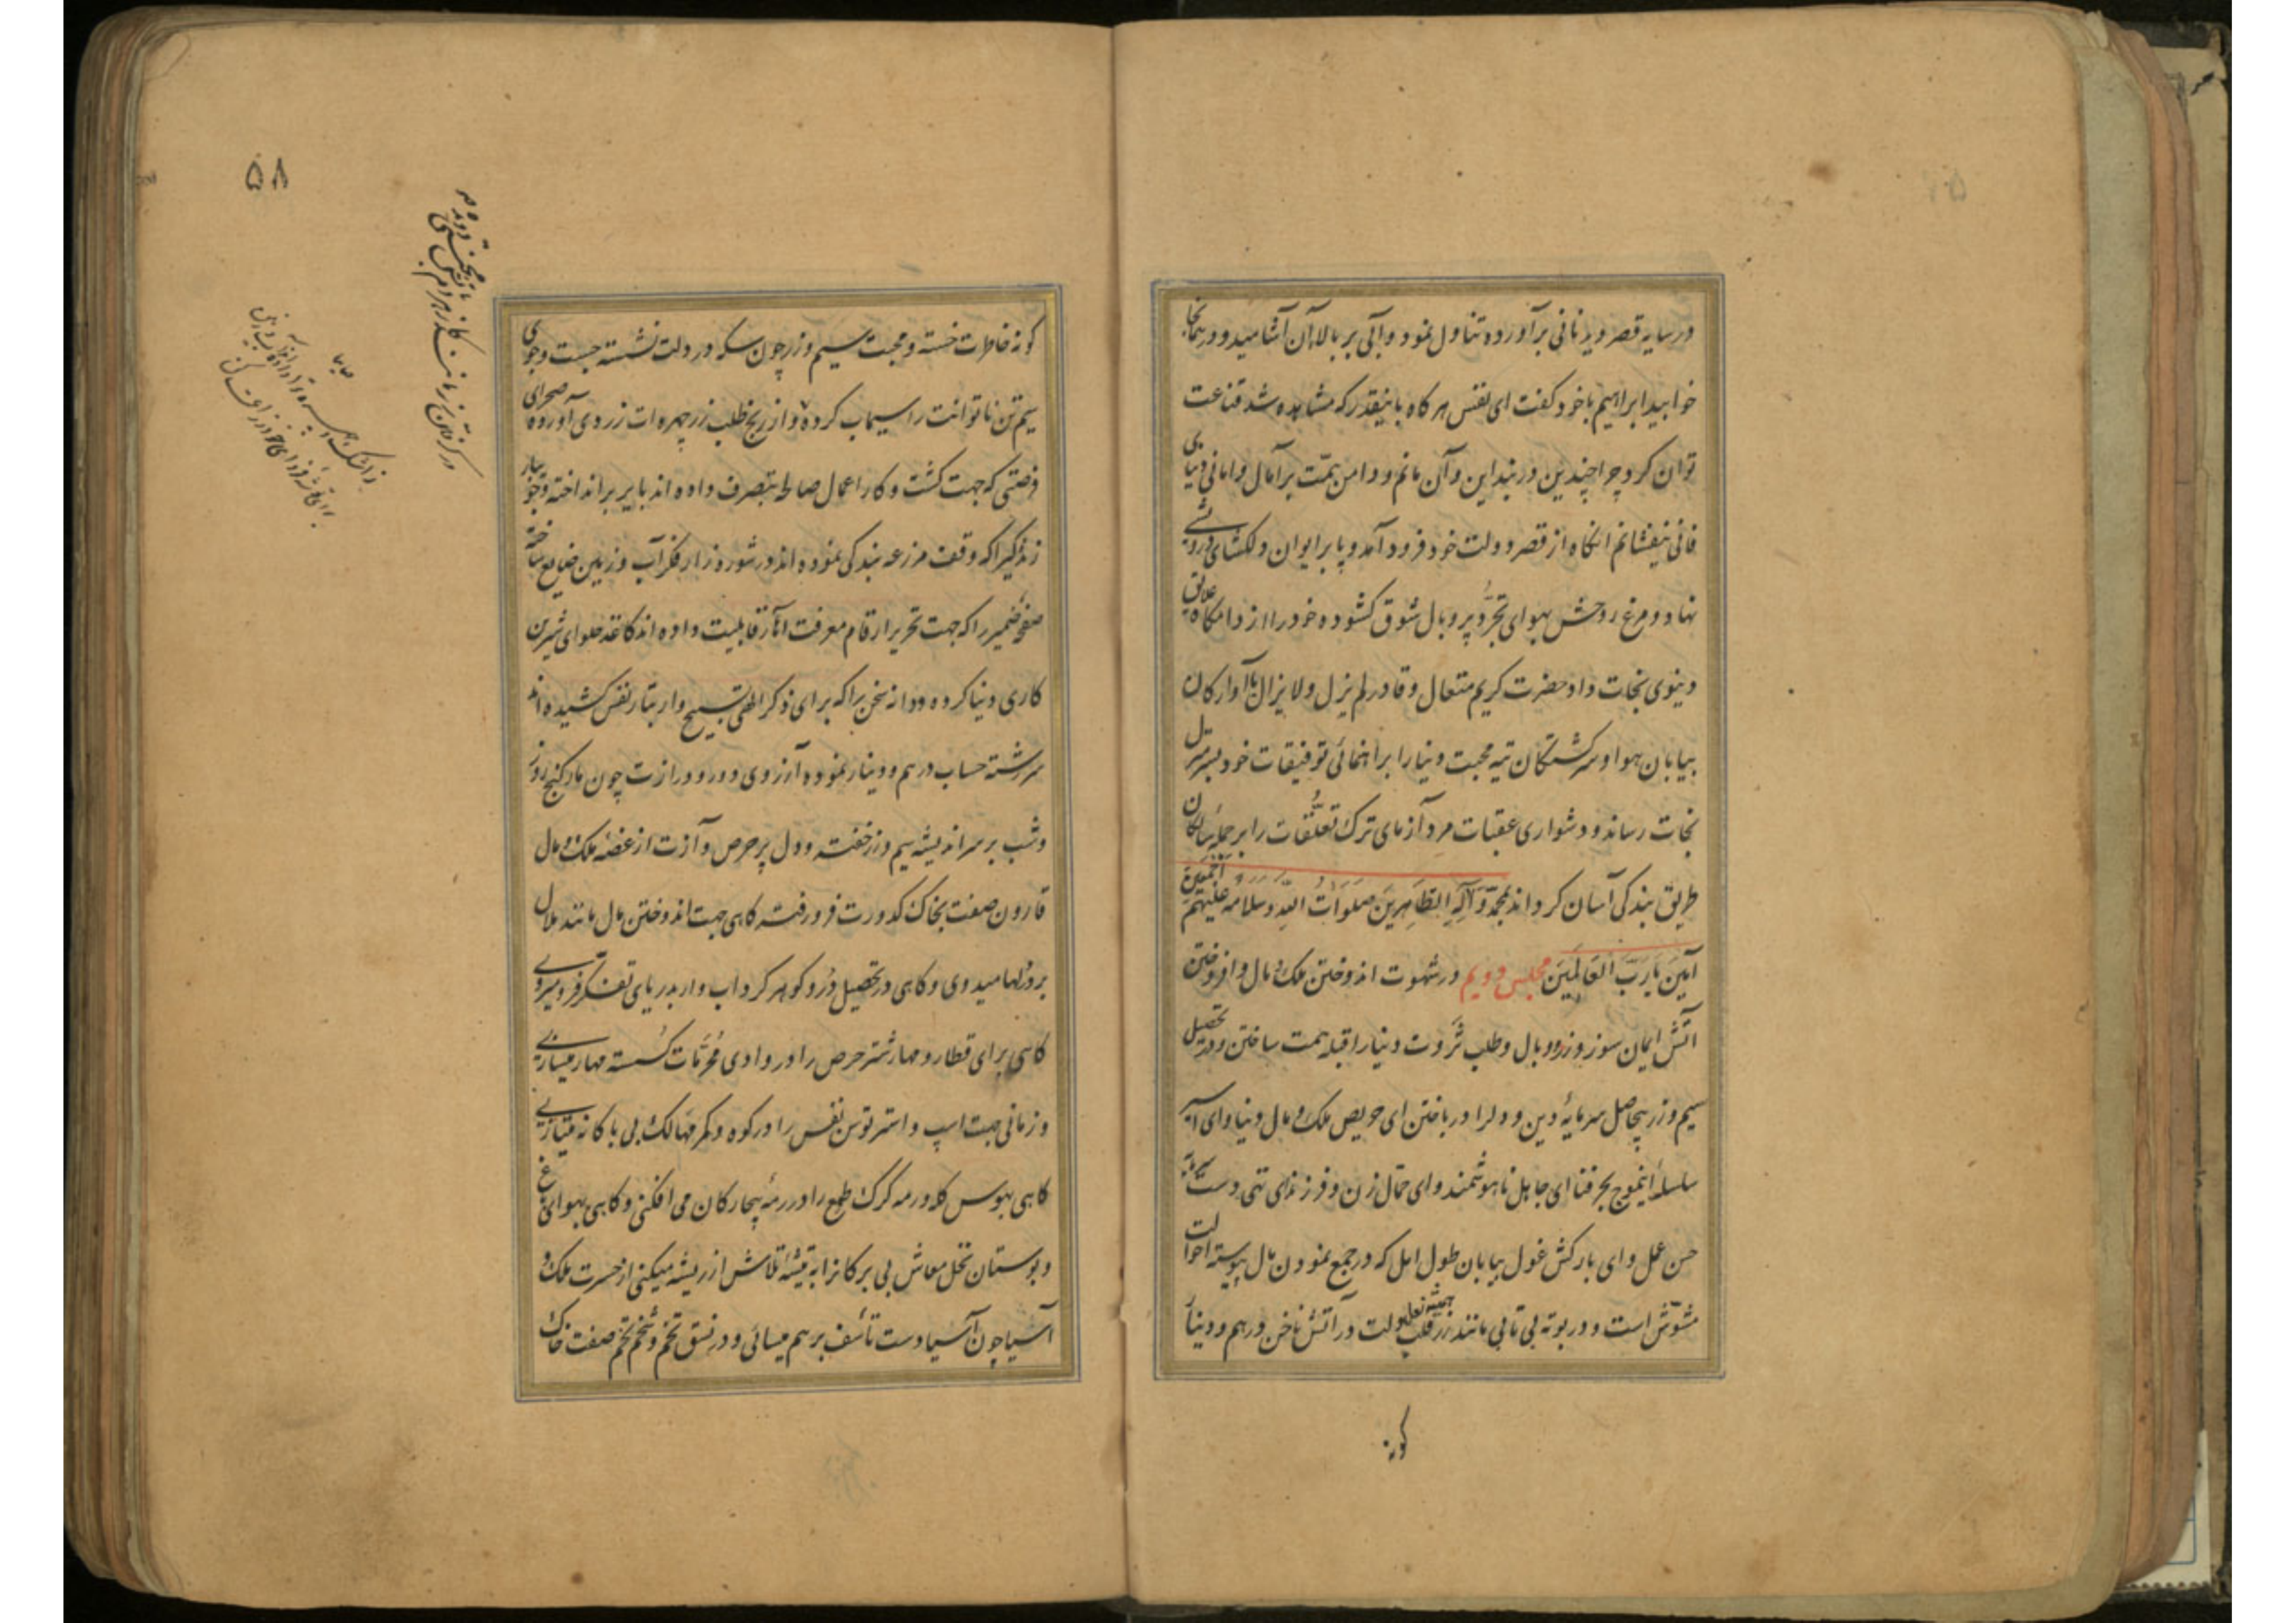 در سایه قصر دید نانی برآورده تناول نمود و آبی بر بالای آن آشامید و در همانجا
خوابید ابراهیم با خود گفت ای نفس هر گاه باینقدر که مشاهده شد قناعت
توان کرد چرا چندین در بند این و آن مانم و دامن همّت بر آمال و امانی دنیای
فانی نیفشانم آنکاه از قصر دولت خود فرود آمد و پا بر ایوان دلکشای درویشی
نهاد و مرغ روحش بهوای تجرّد پر و بال شوق کشوده خود را از دامکاه علایق
دنیوی نجات داد حضرت کریم متعال و قادر لم یزل و لا یزال ما آوارکان
بیابان هوا و سرکشتکان تیه محبت دنیا را براهنمائی توفیقات خود بسرمنزل
نجات رساند و دشواری عقبات مرد آزمای ترک تعلّقات را بر جمله سالکان
طریق بندکی آسان کرداند بمحمّد و آله الطّاهرین صلوات اللّه و سلامه علیهم اجمعین
آمین یا ربّ العالمین مجلس دویم در شهوت اندوختن ملک و مال و افروختن
آتش ایمان سوز وزر و وبال و طلب ثروت دنیا را قبله همت ساختن و در تحصیل
سیم و زر بیحاصل سرمایهٔ دین و دل را در باختن ای حریص ملک و مال دنیا و ای اسیر
سلسلهٔ موج بحر فنا ای جاهل ناهوشمند و ای حمّال زن و فرزند ای تهی دست
حسن عمل و ای بارکش غول بیابان طول امل که در جمع نمودن مال پیوسته احوالت
مشوّش است و در بوته بی تابی مانند زر قلب دلت در آتش ناخن درهم و دینار
همیشه نعل
کونه
۵۸
کونه خاطرات خسته و محبت سیم و زر چون سکه در دلت نشسته جست و جوی
سیم تن ناتوانت را سیماب کرده و از رنج طلب زر چهره ات زردی آورده صحرای
فرصتی که جهت کشت و کار اعمال صالحه بتصرف داده اند بایر برانداخته و جویبار
زندکی را که وقف مزرعه بندکی نموده اند در شوره زار فکر آب و زمین ضایع ساخته
صفحهٔ ضمیر را که جهت تحریر ارقام معرفت آثار قابلیت داده اند کاغذ حلوای شیرین
کاری دنیا کرده و دانه سخن را که برای ذکر الهی تسبیح وار بتار نفس کشیده اند
سررشته حساب درهم و دینار نموده آرزوی دور و درازت چون مار کنج روز
و شب بر سر اندیشه سیم و زر خفته و دل پر حرص و آزت از غصّه ملک و مال
قارون صفت بخاک کدورت فرو رفته کاهی جهت اندوختن مال مانند هلال
بروزنها میدوی و کاهی در تحصیل دُر و کوهر کرداب وار بدریای تفکر فرو میروی
کاهی برای قطار و مهار شتر حرص را در وادی محرّمات کسسته مهار میسازی
و زمانی جهت اسپ و استر توسن نفس را در کوه و کمر مهالک بی باکانه میتازی
کاهی بهوس کله و رمه کرک طمع را در رمهٔ بیچارکان می افکنی و کاهی بهوای باغ
و بوستان نخل معاش بی برکانرا به تیشهٔ تلاش از ریشه میکنی از حسرت ملک و
آسیا چون آسیا دست تأسف بر هم میسائی و در نسق تخم و شخم تخم صفت خاک